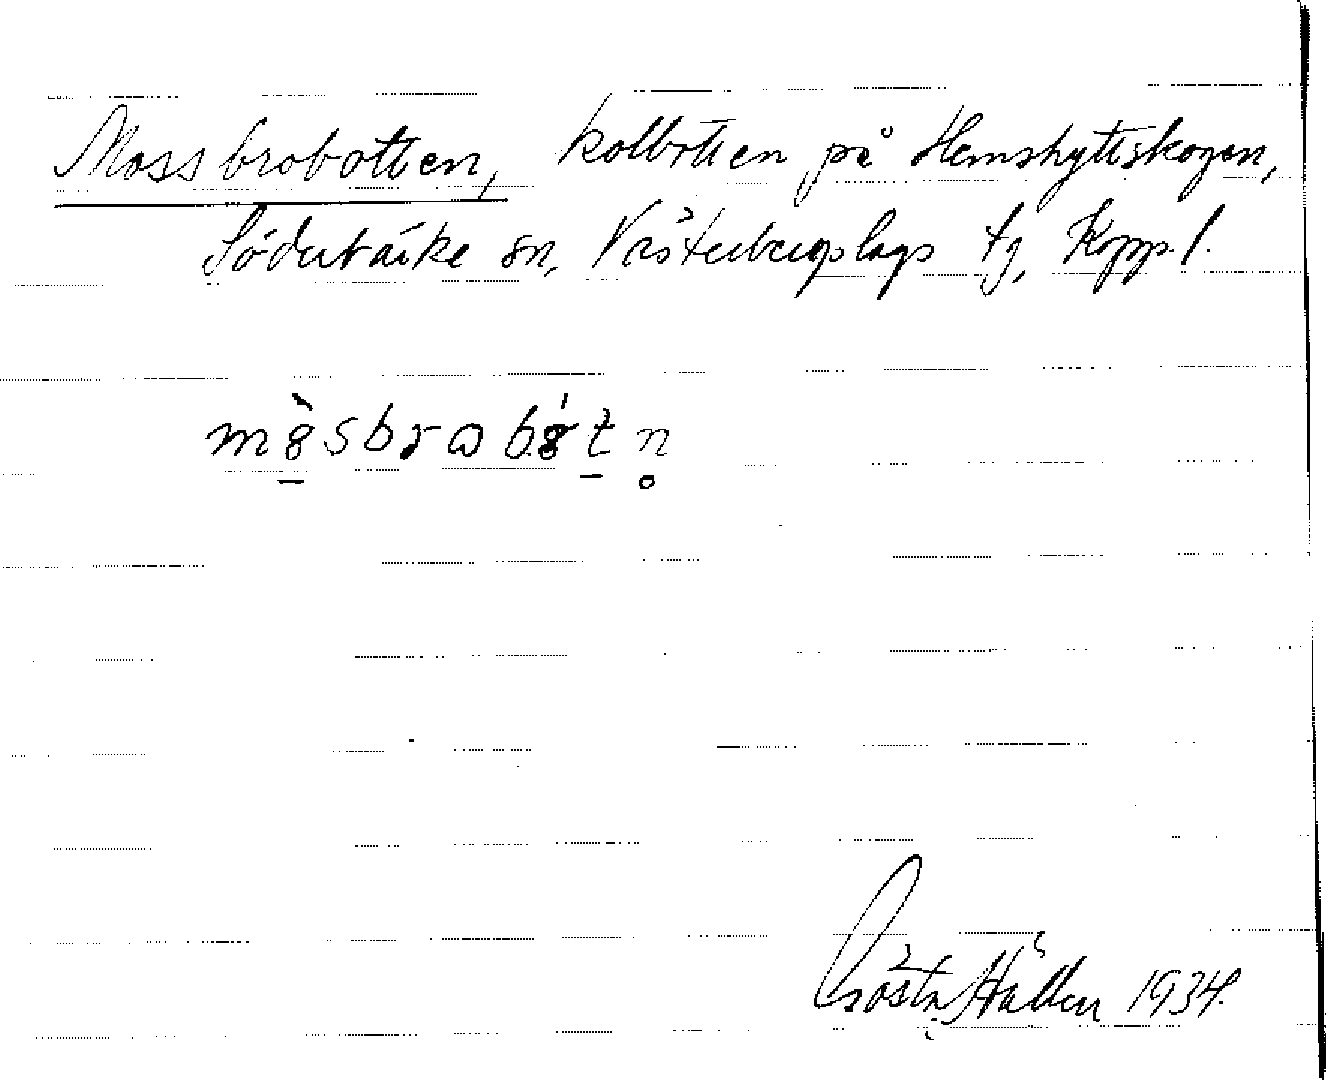 Mossbrobotten, kolbotten på Hemshyttskogen,
Söderbärke sn, Västerbergslags tg, Kopp. l.
Gösta Hallén 1934.